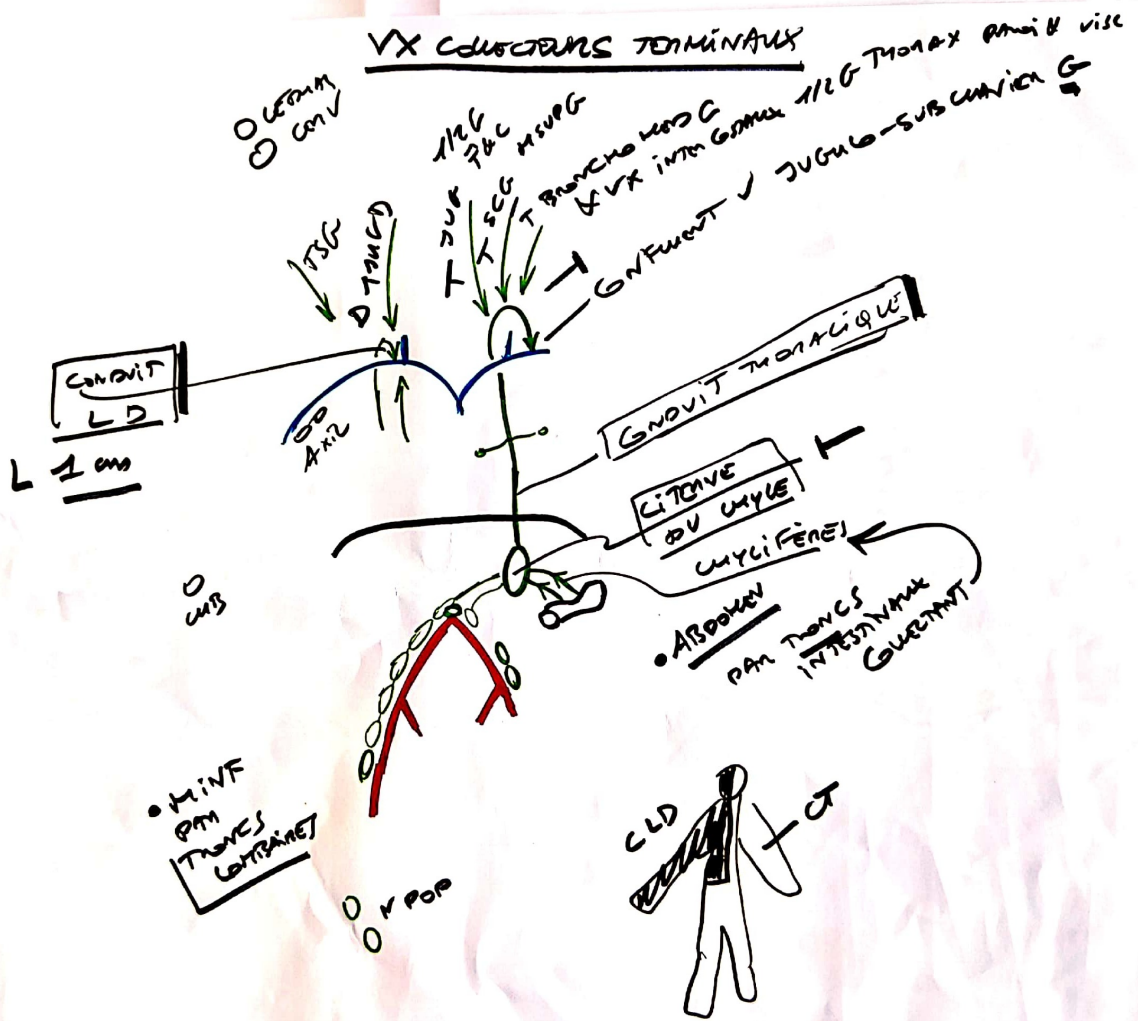 VX COLLECTEURS TERMINAUX
CERV
1/2 G
T&C
MSUP G
T JUG
T SCG
T BRONCHO MED G
& VX INTERCOSTAUX 1/2 G THORAX PAROI & VISC
CONFLUENT V JUGULO-SUBCLAVIER G
TSC
D
CONDUIT
L D
L 1 cm
AXIL
CONDUIT THORACIQUE
CITERNE
DU CHYLE
CHYLIFÈRES
• ABDOMEN
PAR TRONCS
INTESTINAUX
COLLECTANT
• MINF
PAR
TRONCS
LOMBAIRES
N POP
CLD
CT